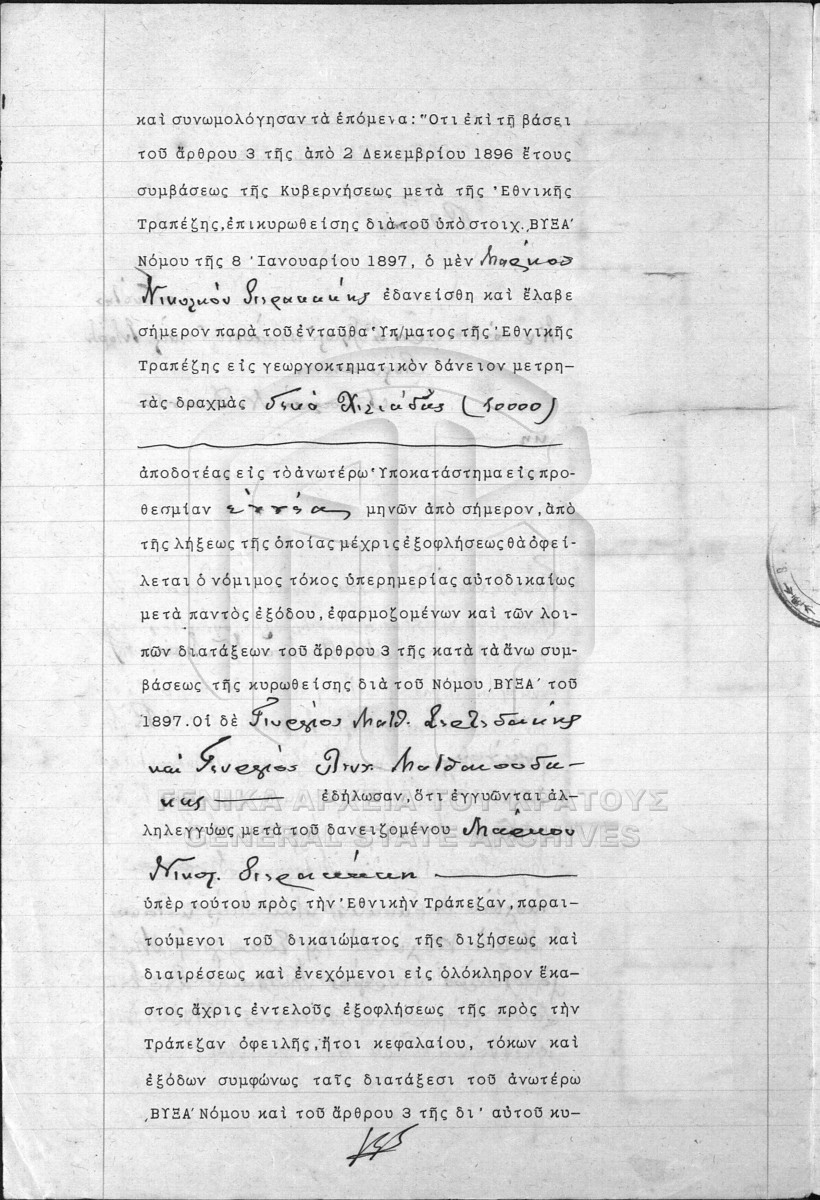 καὶ συνωμολόγησαν τὰ ἑπόμενα: Ὅτι ἐπὶ τῇ βάσει
τοῦ ἄρθρου 3 τῆς ἀπὸ 2 Δεκεμβρίου 1896 ἔτους
συμβάσεως τῆς Κυβερνήσεως μετὰ τῆς Ἐθνικῆς
Τραπέζης, ἐπικυρωθείσης διὰ τοῦ ὑπὸ στοιχ. ͵ΒΥΞΑ'
Νόμου τῆς 8 Ἰανουαρίου 1897, ὁ μὲν Μάρκος
Νικολάου ἐδανείσθη καὶ ἔλαβε
σήμερον παρὰ τοῦ ἐνταῦθα Ὑπ/ματος τῆς Ἐθνικῆς
Τραπέζης εἰς γεωργοκτηματικὸν δάνειον μετρη-
τὰς δραχμὰς δέκα χιλιάδας (10000)
ἀποδοτέας εἰς τὸ ἀνωτέρω Ὑποκατάστημα εἰς προ-
θεσμίαν ἐννέα μηνῶν ἀπὸ σήμερον, ἀπὸ
τῆς λήξεως τῆς ὁποίας μέχρις ἐξοφλήσεως θὰ ὀφεί-
λεται ὁ νόμιμος τόκος ὑπερημερίας αὐτοδικαίως
μετὰ παντὸς ἐξόδου, ἐφαρμοζομένων καὶ τῶν λοι-
πῶν διατάξεων τοῦ ἄρθρου 3 τῆς κατὰ τὰ ἄνω συμ-
βάσεως τῆς κυρωθείσης διὰ τοῦ Νόμου ͵ΒΥΞΑ' τοῦ
1897. Οἱ δὲ Γεώργιος Ματθ.
καὶ Γεώργιος Ματθακουδά-
κης ἐδήλωσαν, ὅτι ἐγγυῶνται ἀλ-
ληλεγγύως μετὰ τοῦ δανειζομένου Μάρκου
Νικολ.
ὑπὲρ τούτου πρὸς τὴν Ἐθνικὴν Τράπεζαν, παραι-
τούμενοι τοῦ δικαιώματος τῆς διζήσεως καὶ
διαιρέσεως καὶ ἐνεχόμενοι εἰς ὁλόκληρον ἕκα-
στος ἄχρις ἐντελοῦς ἐξοφλήσεως τῆς πρὸς τὴν
Τράπεζαν ὀφειλῆς, ἤτοι κεφαλαίου, τόκων καὶ
ἐξόδων συμφώνως ταῖς διατάξεσι τοῦ ἀνωτέρω
͵ΒΥΞΑ' Νόμου καὶ τοῦ ἄρθρου 3 τῆς δι' αὐτοῦ κυ-
ΓΕΝΙΚΑ ΑΡΧΕΙΑ ΤΟΥ ΚΡΑΤΟΥΣ
GENERAL STATE ARCHIVES